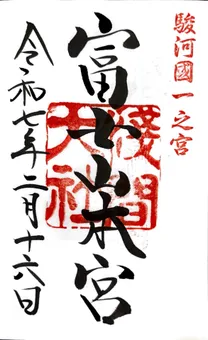 駿河國一之宮
富士山本宮
淺間大社
令和七年二月十六日